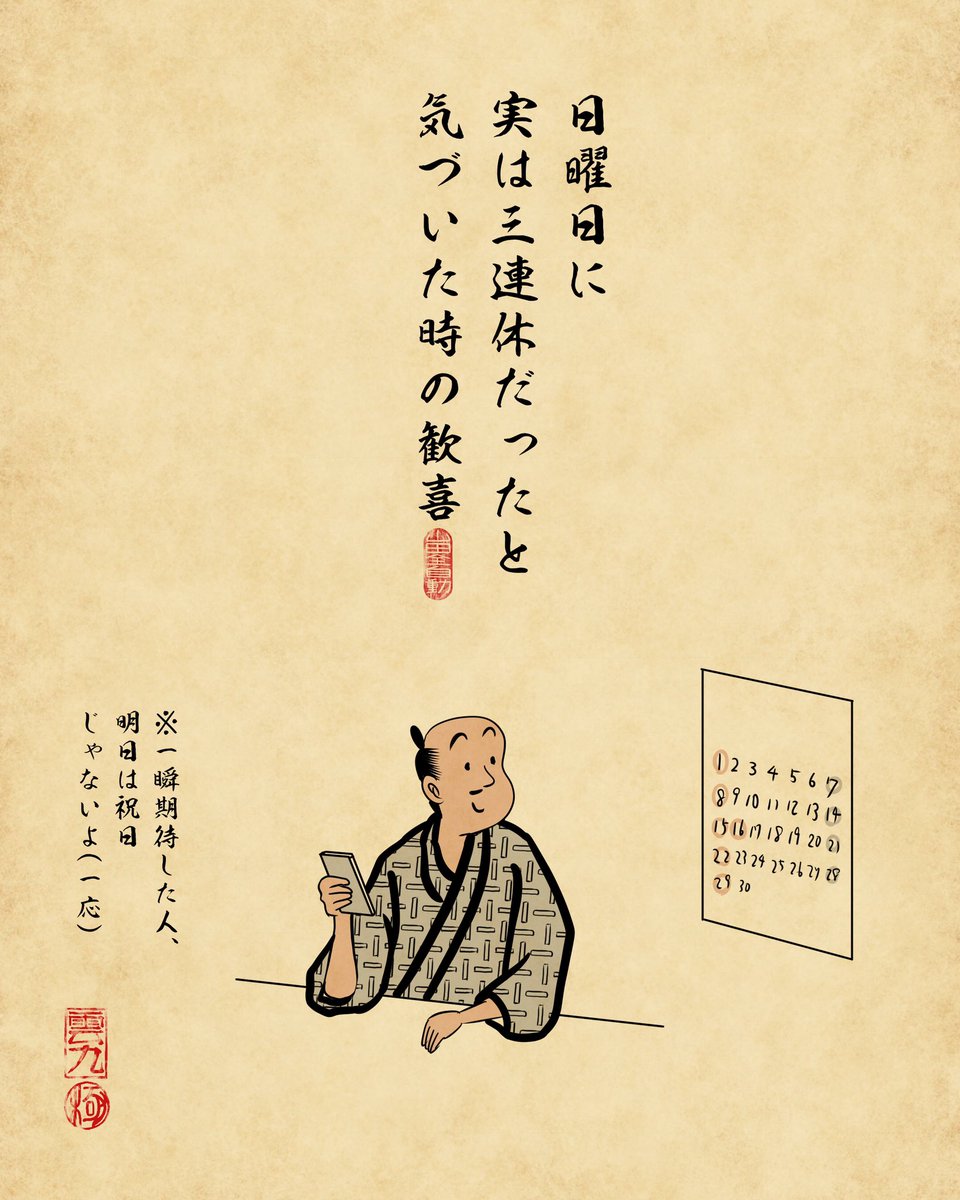 日曜日に
実は三連休だったと
気づいた時の歓喜
1 2 3 4 5 6 7
8 9 10 11 12 13 14
15 16 17 18 19 20 21
22 23 24 25 26 27 28
29 30
※一瞬期待した人、
明日は祝日
じゃないよ(一応)